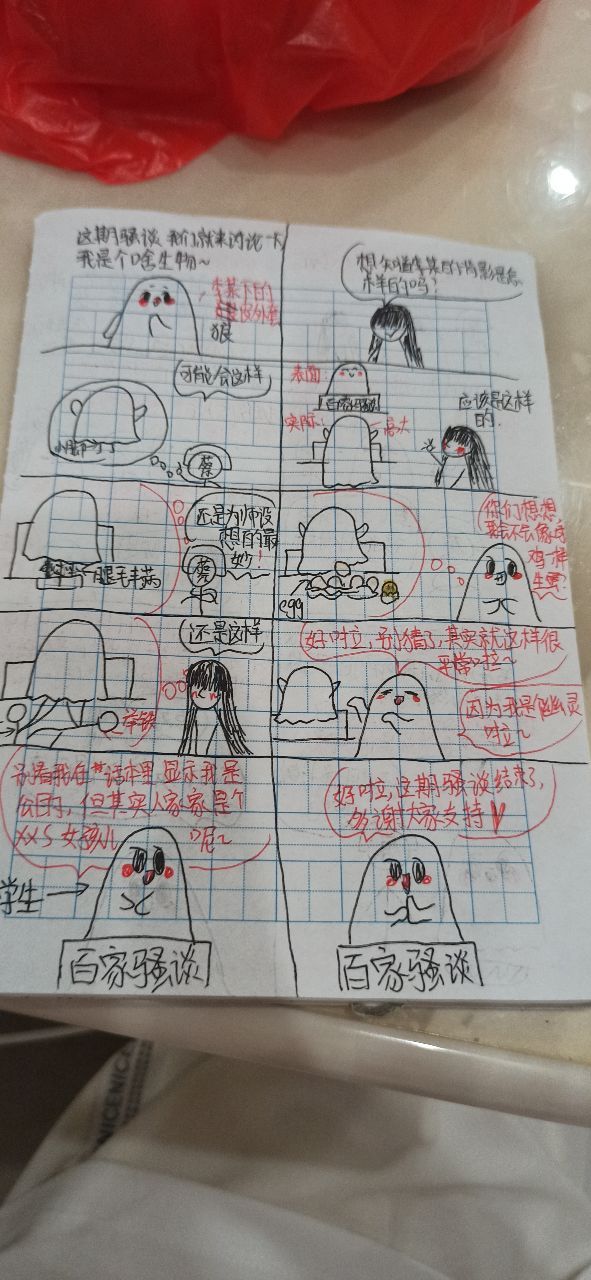 这期骚谈我们就来讨论一下
我是个啥生物~
李某下的
皮外套
狼
想知道李某的背影是怎
样的吗?
可能会这样
小脚丫
蔡
表面:
百家骚谈
实际:
庞大
应该是这样
的.
还是为师设
想的最
妙!
蔡
腿毛丰满
你们想想,
我会不会像母
鸡一样
生蛋?
egg
还是这样
举铁
好啦,别猜了,其实就这样很
平常啦~
因为我是幽灵
啦~
别看我在*话本里显示我是
公的,但其实人家家是个
XXS女孩儿呢~
学生
百家骚谈
好啦,这期骚谈结束了,
多谢大家支持
百家骚谈
NICENIC